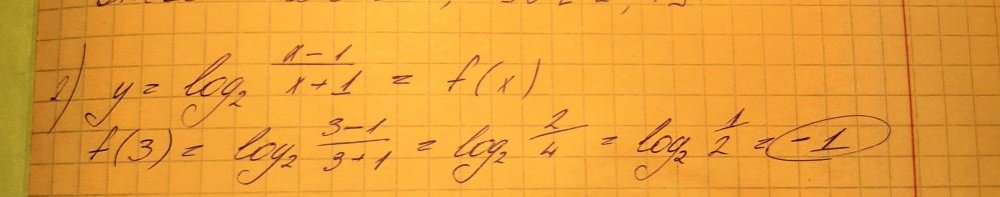 2) y = log₂ x-1/x+1 = f(x)
f(3) = log₂ 3-1/3+1 = log₂ 2/4 = log₂ 1/2 = -1